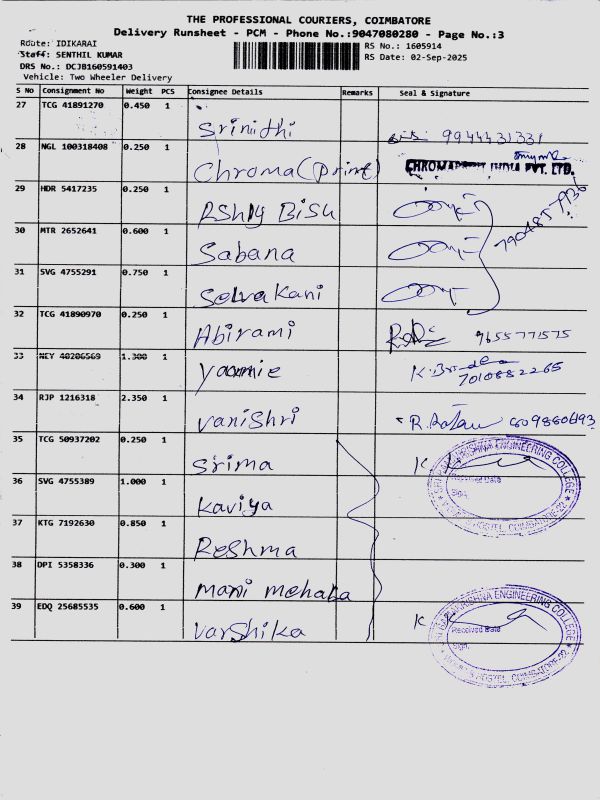 THE PROFESSIONAL COURIERS, COIMBATORE
Delivery Runsheet - PCM - Phone No.:9047080280 - Page No.:3
Route: IDIKARAI
Staff: SENTHIL KUMAR
DRS No.: DCJB160591403
Vehicle: Two Wheeler Delivery
RS No.: 1605914
RS Date: 02-Sep-2025
S No Consignment No Weight PCS Consignee Details Remarks Seal & Signature
27 TCG 41891270 0.450 1
Srinithi 9944431331
28 NGL 100318408 0.250 1
Chroma (print) CHROMAPRINT INDIA PVT. LTD.
29 HDR 5417235 0.250 1
Bisu
30 MTR 2652641 0.600 1
Sabana
31 SVG 4755291 0.750 1
Selvakani
32 TCG 41890970 0.250 1
Abirami 9655771575
33 NEY 40206569 1.300 1
Yaamie 7010882265
34 RJP 1216318 2.350 1
Vanishri
35 TCG 50937202 0.250 1
Srima K
36 SVG 4755389 1.000 1
Kaviya
37 KTG 7192630 0.850 1
Reshma
38 DPI 5358336 0.300 1
Mani mehala
39 EDQ 25685535 0.600 1
Varshika K
SRI RAMAKRISHNA ENGINEERING COLLEGE
Received Date
Sign.
WOMEN'S HOSTEL, COIMBATORE-22
SRI RAMAKRISHNA ENGINEERING COLLEGE
Received Date
Sign.
WOMEN'S HOSTEL, COIMBATORE-22